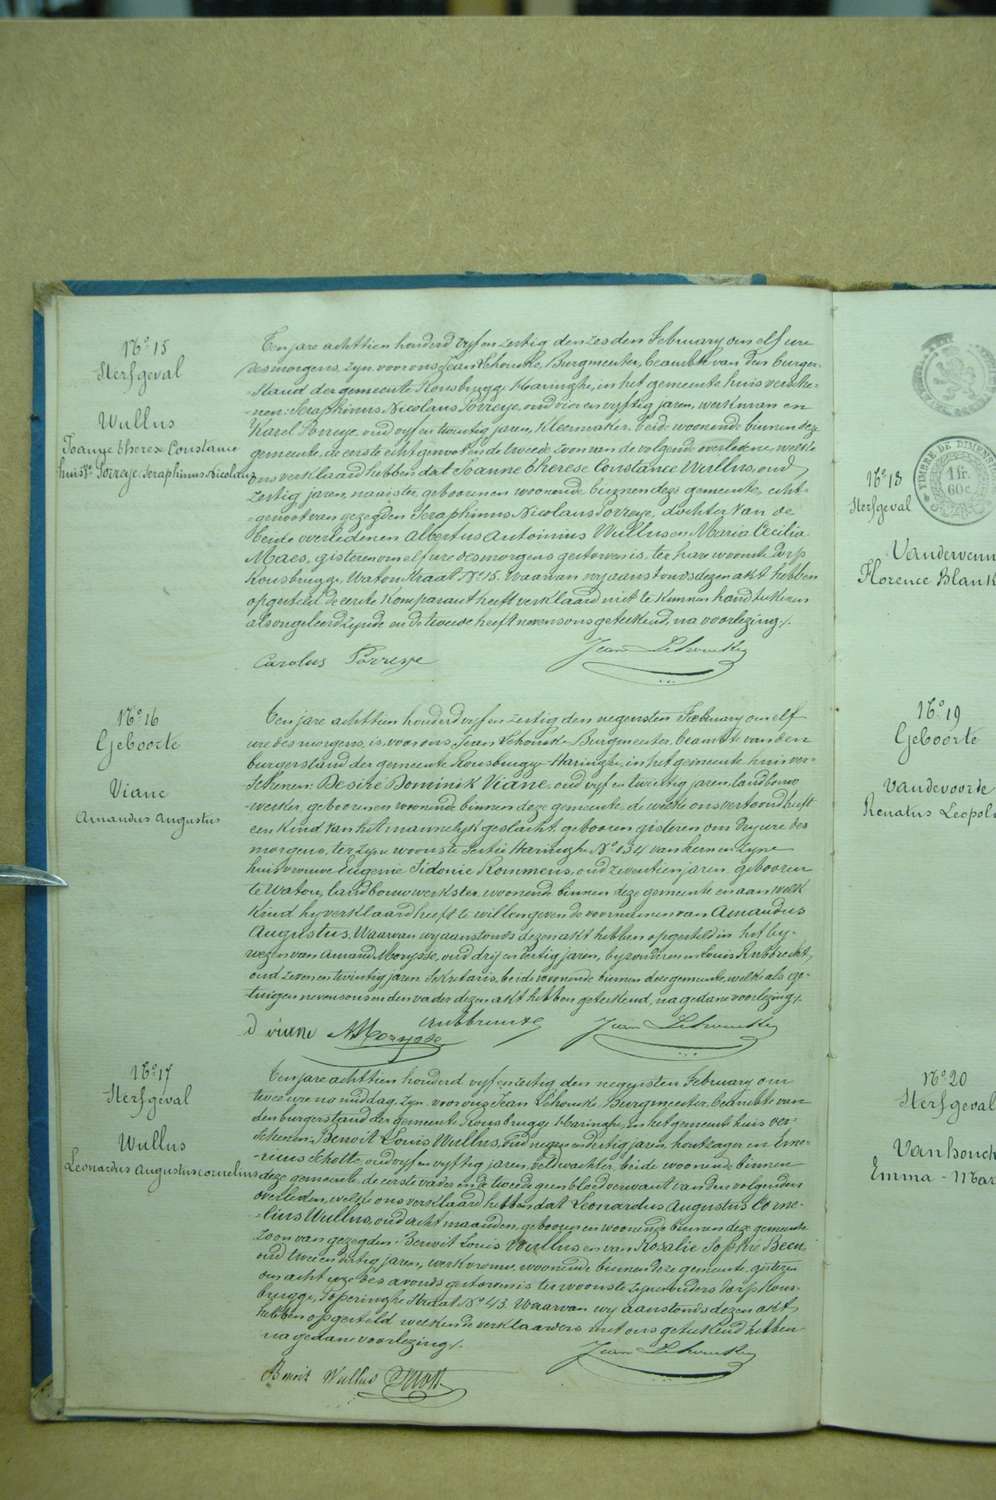 No 15
Sterfgeval
Wullus
Joanna Therex Constance
huisve Porreye Seraphinus Nicolaus
Ten jare achttien honderd vyf en zestig den zesden February om elf ure
des morgens, zyn voor ons Jean Schoucke, Burgmeester, beambte van den burger-
-stand der gemeente Rousbrugge Haringhe, in het gemeente huis versche-
-nen: Seraphinus Nicolaus Porreye, oud vier en vyftig jaren, werkman en
Karel Porreye, oud vyf en twintig jaren, kleermaker, beide woonende binnen deze
gemeente, de eerste echtgenoot en de tweede zoon van de volgende overledene, welke
ons verklaard hebben dat Joanne Therese Constance Wullus, oud
zestig jaren, naaister, gebooren en woonende binnen deze gemeente, echt-
-genoote van gezegden Seraphinus Nicolaus Porreye, dochter van de
beide overledenen Albertus Antoinius Wullus en Maria Cecilia
Maes, gisteren om elf ure des morgens gestorven is, ter hare woonste dorp
Rousbrugge, Watou straat No 15. Waarvan wy aanstonds dezen akt hebben
opgesteld de eerste komparant heeft verklaard niet te kunnen handtekenen
als ongeleerd zynde en de tweede heeft nevens ons geteekend, na voorlezing ./.
Carolus Porreye
No 16
Geboorte
Viane
Amandus Augustus
Ten jare achttien honderd vyf en zestig den negensten February om elf
ure des morgens, is voor ons, Jean Schoucke Burgmeester, beambte van den
burgerstand der gemeente Rousbrugge-Haringhe, in het gemeente huis ver-
-schenen: Desiré Dominik Viane, oud vyf en twintig jaren, landbouw
werker, gebooren en woonende binnen deze gemeente, de welke ons vertoond heeft
een kind van het mannelyk geslacht, gebooren gisteren om dry ure des
morgens, ter zyne woonste Sectie Haringhe No 134 van hem en zyne
huisvrouwe Eugenie Sidonie Rommens, oud zeventien jaren, gebooren
te Watou, landbouwwerkster, woonende binnen deze gemeente en aan welk
kind hy verklaard heeft te willen geven de voornamen van Amandus
Augustus. Waarvan wy aanstonds dezen akt hebben opgesteld in het by-
wezen van Amand Morysse, oud dry en dertig jaren, byzonderen en Louis Rubbrecht,
oud zeven en twintig jaren Sekretaris, beide woonende binnen deze gemeente, welke als ge-
tuigen nevens ons en den vader dezen akt hebben geteekend, na gedane voorlezing ./.
D viane AMorysse
No 17
Sterfgeval
Wullus
Leonardus Augustus Cornelius
Ten jare achttien honderd vyf en zestig den negensten February om
twee ure na middag, zyn voor ons Jean Schoucke, Burgmeester, beambte van
den burgerstand der gemeente Rousbrugge Haringhe, in het gemeente huis ver-
-schenen: Benoit Louis Wullus, oud negen en dertig jaren, houtzager en Ime-
-rinus Scholte, oud vyf en vyftig jaren, veldwachter, beide woonende binnen
deze gemeente, de eerste vader en de tweede geen bloedverwant van den volgenden
overleden, welke ons verklaard hebben dat Leonardus Augustus Corne-
-lius Wullus, oud acht maanden, gebooren en woonende binnen deze gemeente
zoon van gezegden Benoit Louis Wullus en van Rosalie Sophie Been,
oud twee en dertig jaren, werkvrouw, woonende binnen deze gemeente, gisteren
om acht ure des avonds gestorven is ter woonste zyner ouders dorp Rous-
brugge, Poperinghe Straat No 43. Waarvan wy aanstonds dezen akt
hebben opgesteld welken de verklaarders met ons geteekend hebben
na gedane voorlezing ./.
Benoit Wullus
TIMBRE DE DIMENSION
1 fr.
60 c.
No 18
Sterfgeval
Florence Blank
No 19
Geboorte
Vandevoorde
Renatus Leopol
No 20
Sterfgeval
Vanhouck
Emma - Mar